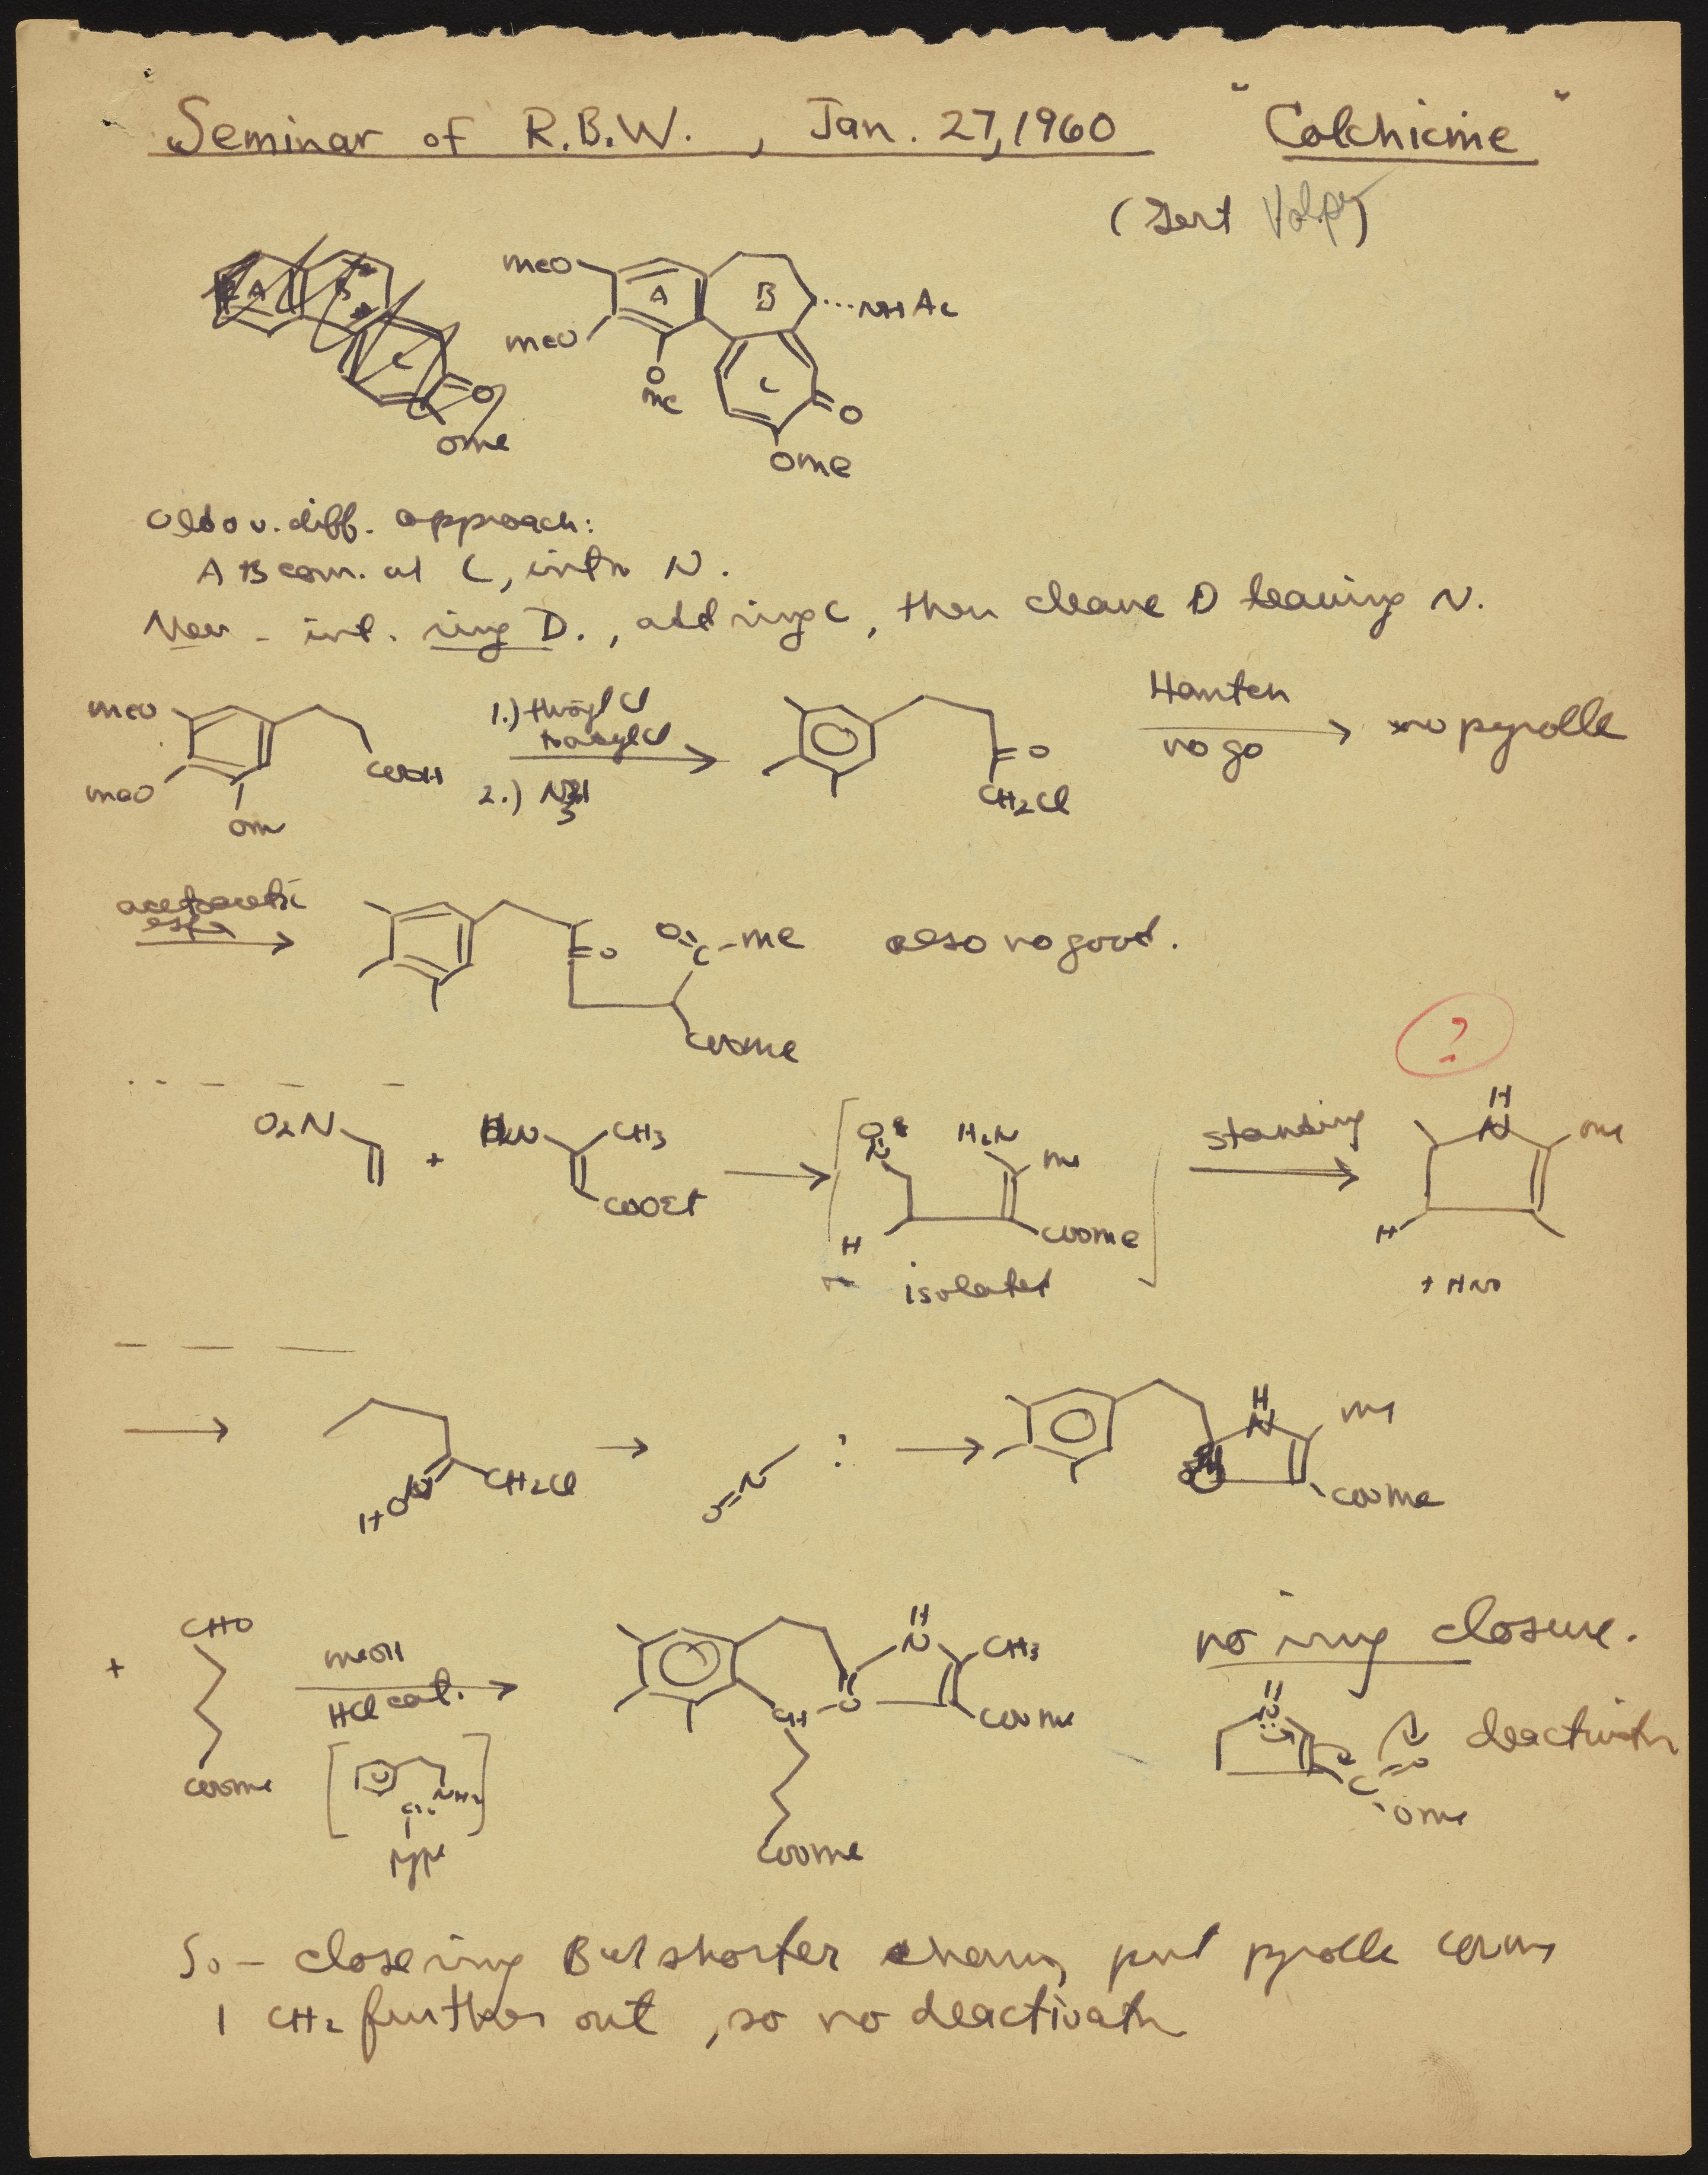 Seminar of R.B.W., Jan. 27, 1960 "Colchicine"
(Gert Volpp)
A B C O OMe
MeO MeO O Me A B C NHAc O OMe
Old o v. diff. approach:
A B com. at C, intr N.
New - int. ring D., add ring C, then cleave D leaving N.
MeO MeO OM COOH 1.) thionyl Cl 2.) O CH2Cl Hanten no go no pyrolle
acetoacetic ester O O=C-Me COOMe also no good.
?
O2N + H2N CH3 COOEt H2N Me COOMe H isolated standing H N Me H + HNO
HON CH2Cl O=N : H N Me COOMe
+ CHO COOMe MeOH HCl cat. NH2 type H N CH3 COOMe CH COOMe no ring closure.
N C O OMe deactivatn
So - close ring B w/ shorter chain, put pyrolle COOMe
1 CH2 further out, so no deactivatn